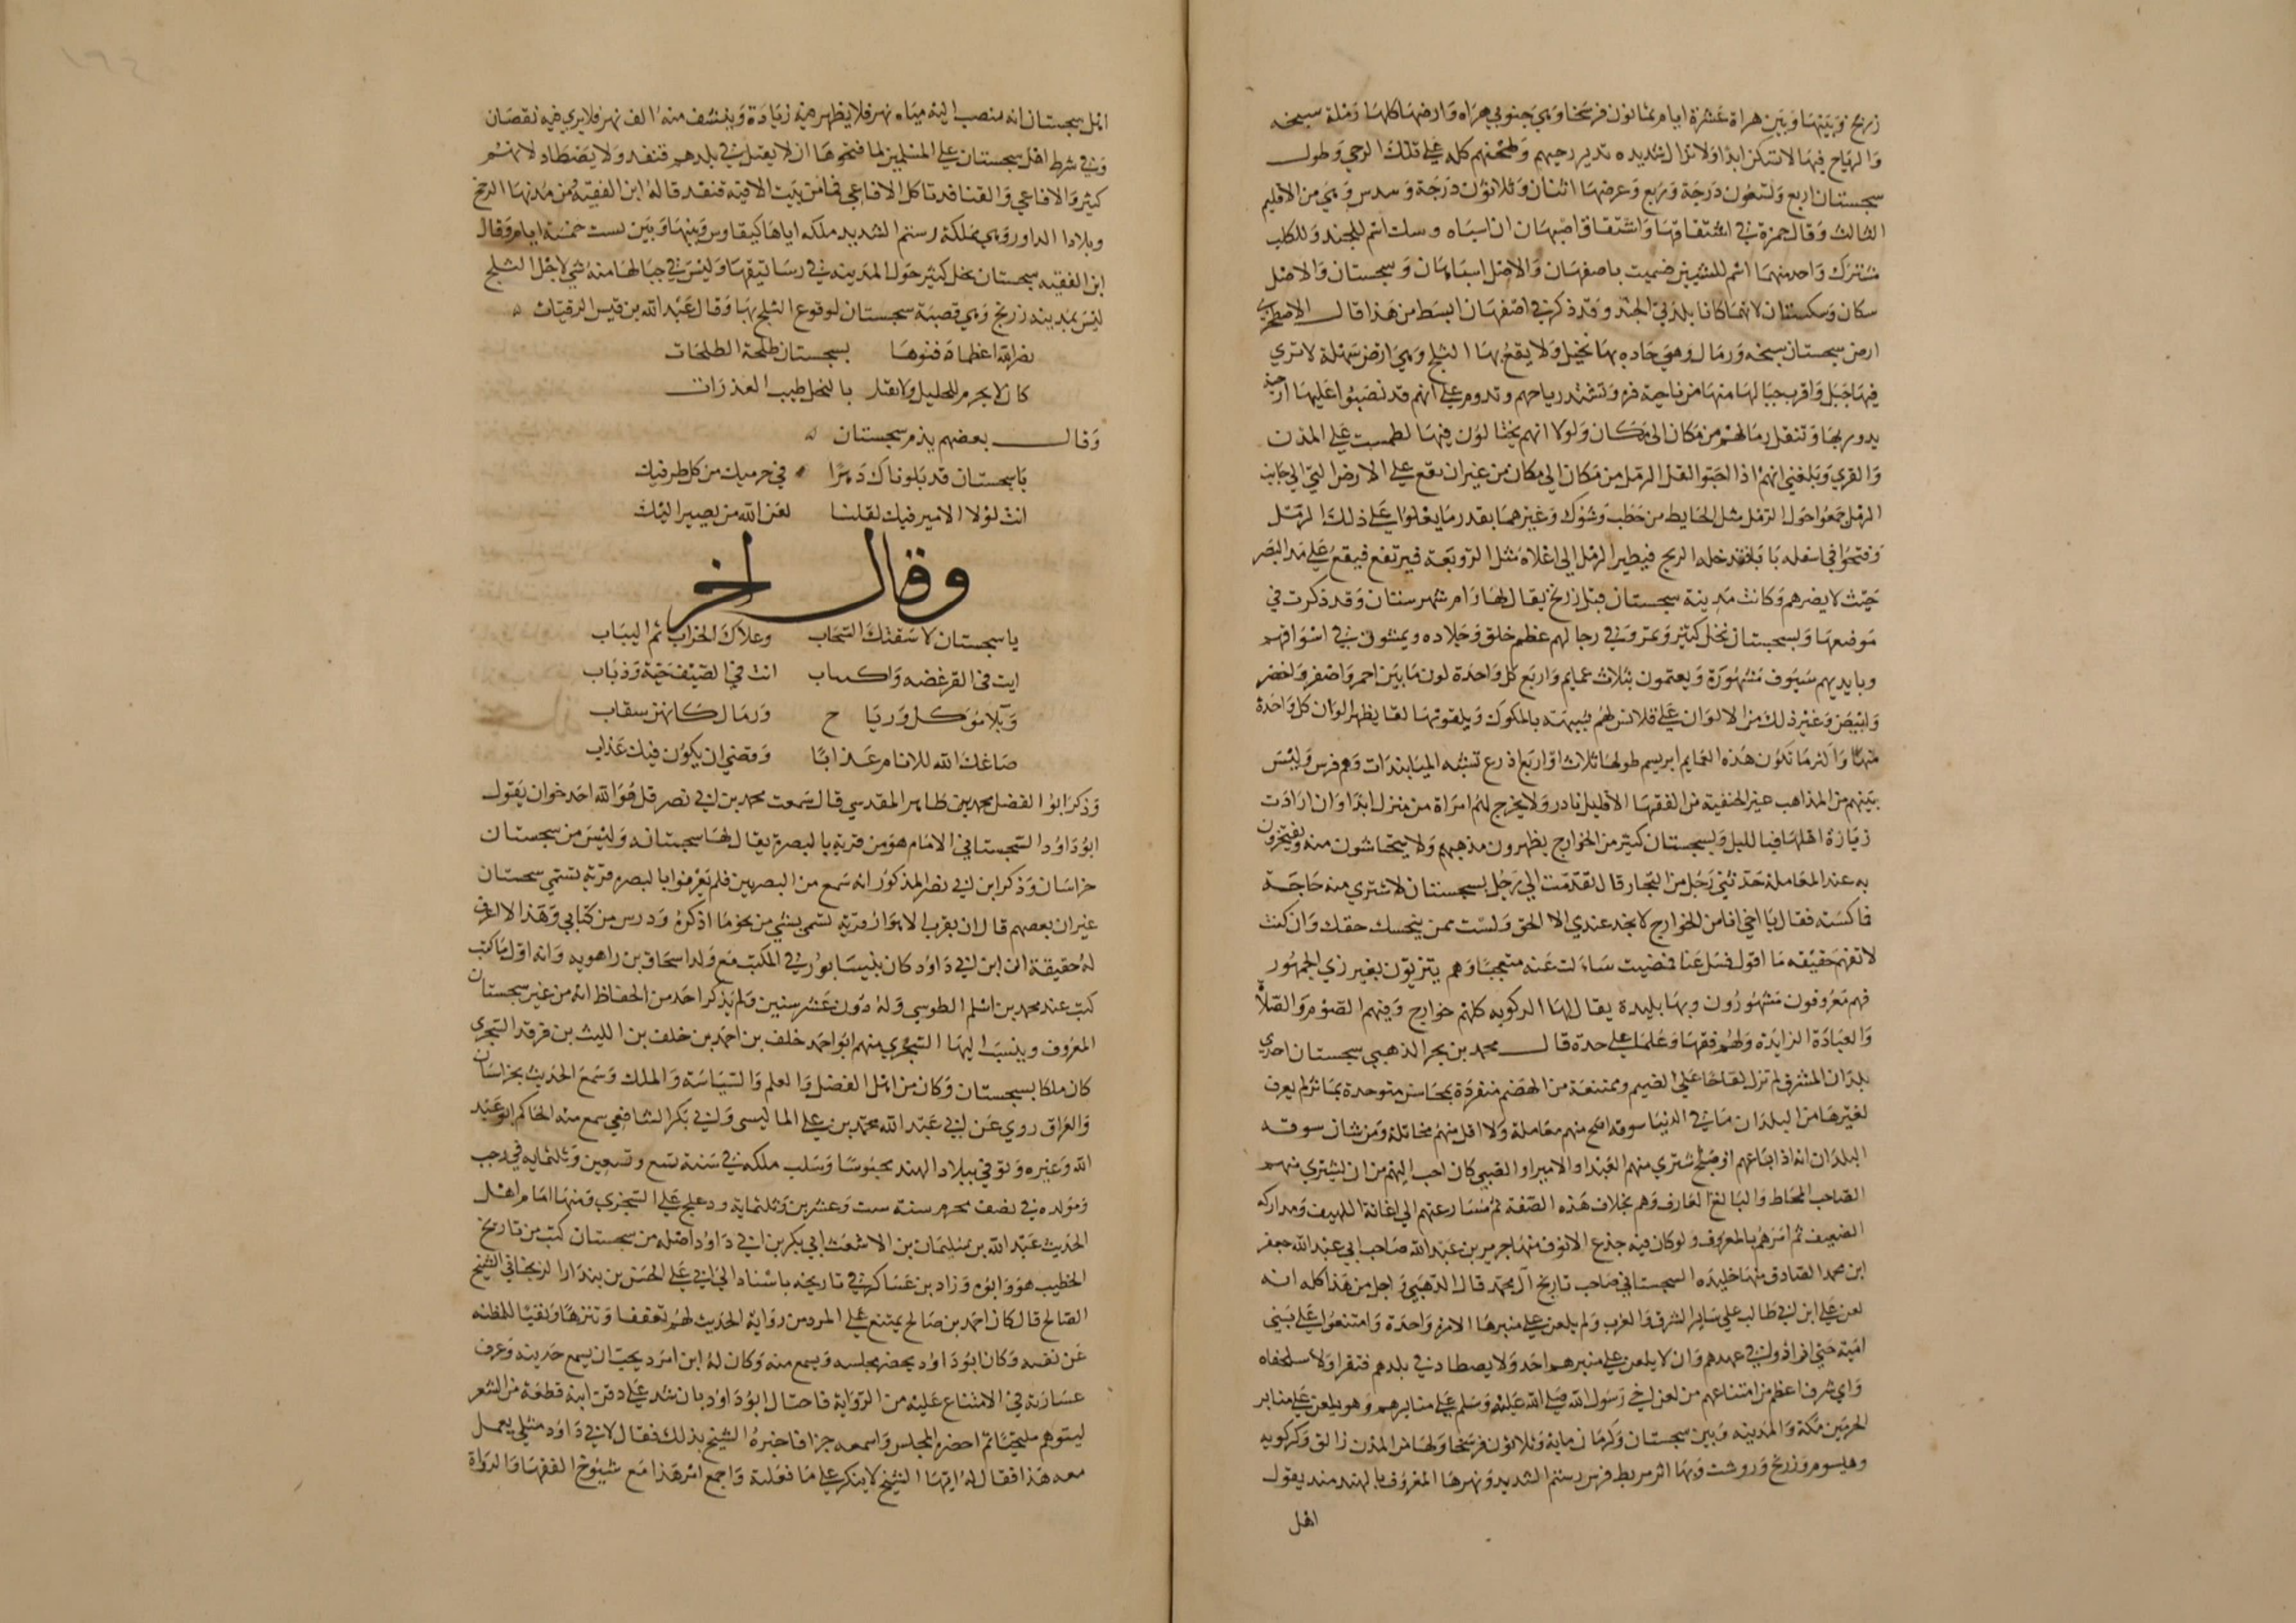 زرنج وبينها وبين هراة عشرة ايام ثمانون فرسخا وهي جنوبي هراه وارضها كلها رملة سبخه
والرياح فيها لا تسكن ابدا ولا تزال شديده تدير رحيهم وطحنهم كله على تلك الرحي وطول
سجستان اربع وستعون درجة وربع وعرضها اثنان وثلاثون درجة وسدس وهي من الاقليم
الثالث وقال حمزة في اشتقاقها واشتقاق اصبهان ان اسباه وسك اسم للجند وللكلب
مشترك واحد منهما اسم للشيين فسميت باصفهان والاصل اسباهان وسجستان والاصل
سكان وسكستان لانهما كانا بلدتي الجند وقد ذكر في اصفهان ابسط من هذا قال الاصطخري
ارض سجستان سبخه ورمال وهي حاده بها نخيل ولا يقع بها الثلج وهي ارض سهلة لا تري
فيها جبل واقرب جبالها منها من ناحية فره وتشتد رياحهم وتدوم على انهم قد نصبوا عليها ارحية
يدور بها وتنقل رمالهم من مكان الى مكان ولولا انهم يحتالون فيها لطمست على المدن
والقري وبلغني انهم اذا احبوا نقل الرمل من مكان الي مكان من غير ان يقع على الارض التي الي جانب
الرمل جمعوا حول الرمل مثل الحايط من حطب وشوك وغيرهما بقدر ما يعلوا على ذلك الرمل
وفتحوا في اسفله بابا فتدخله الريح فيطير الرمل الي اعلاه مثل الزوبعة فيرتفع فيقع على مد البصر
حيث لا يضرهم وكانت مدينة سجستان قبل زرنج يقال لها رام شهرستان وقد ذكرت في
موضعها وبسجستان نخل كثير وتمر وفي رجالهم عظم خلق وجلاده ويمشون في اسواقهم
وبايديهم سيوف مشهورة ويعتمون بثلاث عمايم واربع كل واحدة لون ما بين احمر واصفر واخضر
وابيض وغير ذلك من الالوان على قلانس لهم شبيهة بالمكوك ويلفونها لفا يظهر الوان كل واحدة
منها واكثر ما تكون هذه العمايم ابريسم طولها ثلاث او اربع اذرع تشبه الميابندات وهم فرس وليس
بينهم من المذاهب غير الحنفية من الفقها الا قليل نادر ولا يخرج لهم امراة من منزل ابدا وان ارادت
زيارة اهلها فبا لليل وبسجستان كثير من الخوارج يظهرون مذهبهم ولا يتحاشون منه ويفتخرون
به عند المعاملة حدثني رجل من التجار قال تقدمت الي رجل بسجستان لاشتري منه حاجة
فاكسته فقال يا اخي انا من الخوارج لا تجد عندي الا الحق ولست ممن يبخسك حقك وان كنت
لا تفهم حقيقه ما اقول فسل عنا فمضيت سالت عنه متعجبا وهم يتزيون بغير زي الجمهور
فهم معروفون مشهورون وبها بليدة يقال لها الركويه كلهم خوارج وفيهم الصوم والصلاة
والعبادة الزايدة ولهم فقها وعلما على حدة قال محمد بن بحر الذهبي سجستان احدى
بلدان المشرق لم تزل لقاحا على الضيم وممتنعة من الهضم منفردة بمحاسن متوحدة بماثر لم يعرف
لغيرها من البلدان ما في الدنيا سوقه اصح منهم معاملة ولا اقل منهم مخاتلة ومن شان سوقه
البلدان انه اذا باعهم او مشتري منهم العبد او الاسير او الصبي كان احب اليهم من ان يشتري منهم
الصاحب المحتاط والبالغ العارف وهم بخلاف هذه الصفة ثم مسارعتهم الي اغاثة اللهيف ومداركه
الضعيف ثم امرهم بالمعروف ولو كان فيه جذع الانوف منها جرير بن عبد الله صاحب ابي عبد الله جعفر
ابن محمد الصادق منها خليده السجستاني صاحب تاريخ آل محمد قال الذهبي واجل من هذا كله انه
لعن على ابن ابي طالب على ساير الشرق والغرب ولم يلعن على منبرها الا مرة واحدة وامتنعوا على بني
امية حتي زادوا في عهدهم وان لا يلعن على منبرهم احد ولا يصطاد في بلدهم قنفرا ولا سلحفاه
واي شرف اعظم من امتناعهم من لعن اخي رسول الله صلى الله عليه وسلم على منابرهم وهو يلعن على منابر
الحرمين مكة والمدينه وبين سجستان وكرمان ماية وثلاثون فرسخا ولها من المدن زالق وكركويه
وهيسوم وزرنج وروشت وبها اثر مربط فرس رستم الشديد ونهرها المعروف بالهند مند يقول
اهل
اهل سجستان انه منصب اليه مياه نهر فلا يظهر فيه زيادة وينشف منه الف نهر فلا يري فيه نقصان
وفي شرط اهل سجستان على المسلمين لما فتحوها ان لا يقتل في بلدهم قنفد ولا يصطاد لانهم
كثير والافاعي والقنافد تاكل الافاعي فما من بيت الا فيه قنفد قاله ابن الفقيه ومن مدنها الرخج
وبلادا الداور وهي مملكة رستم الشديد ملكه اياها كيقاوس وبينها وبين بست خمسة ايام وقال
ابن الفقيه سجستان نخل كثير حول المدينه في رساتيقها وليس في جبالها منه شي لاجل الثلج
ليس بمدينه زرنج وهي قصبة سجستان لوقوع الثلج بها وقال عبد الله بن قيس الرقيات
نضر الله اعظما دفنوها بسجستان طلحة الطلحات
كان لا يحرم الخليل ولا يعتل بالبخل طيب العذرات
وقال بعضهم يذم سجستان
يا سجستان قد بلوناك دهرا في حرميك من كل طرفيك
انت لولا الامير فيك لقلنا لعن الله من يصير اليك
وقال اخر
يا سجستان لا سقتك السحاب وعلاك الخراب ثم اليباب
انت في القر غضه واكتياب انت في الصيف حية وذباب
وبلا موكل ورياح ورمال كانهن سقاب
صاغك الله للانام عذابا وقضي ان يكون فيك عذاب
وذكر ابو الفضل محمد بن طاهر المقدسي قال سمعت محمد بن ابي نصر قل هو الله احد خوان يقول
ابو داود السجستاني الامام هو من قرية بالبصرة يقال لها سجستانه وليس من سجستان
خراسان وذكر ابن ابي نصر المذكور انه سمع من البصريين فلم يعرفوا بالبصره قرية تسمي سجستان
غير ان بعضهم قال ان بقرب الاهواز قرية تسمي بشي من نحو ما اذكره ودرس من كتابي وهذا لا اعرف
له حقيقة لان ابن ابي داود كان بنيسابور في المكتب مع ولد اسحاق بن راهويه وانه اول ما كتب
كتب عند محمد بن اسلم الطوسي وله دون عشر سنين ولم يذكر احد من الحفاظ انه من غير سجستان
المعروف وينسب اليها السجزي منهم ابو احمد خلف بن احمد بن خلف بن الليث بن فرقد السجزي
كان ملكا بسجستان وكان من اهل الفضل والعلم والسياسة والملك وسمع الحديث بخراسان
والعراق روي عن ابي عبد الله محمد بن علي الماليسى وابي بكر الشافعي سمع منه الحاكم ابو عبد
الله وغيره وتوفي ببلاد الهند محبوسا وسلب ملكه في سنة تسع وتسعين وثلثمايه في رجب
ومولده في نصف محرم سنة ست وعشرين وثلثماية ودعلج على السجزي ومنها امام اهل
الحديث عبد الله بن سليمان بن الاشعث ابي بكر بن ابي داود اصله من سجستان كتب من تاريخ
الخطيب هو وابوه وزاد بن عساكر في تاريخه باسناد الي ابي علي الحسن بن بندار الزنجاني الشيخ
الصالح قال كان احمد بن صالح يمتنع على المرد من رواية الحديث لهم تعففا وتنزها ونفيا للمظنه
عن نفسه وكان ابو داود يحضر مجلسه ويسمع منه وكان له ابن امرد يحب ان يسمع حديثه وعرف
عادته في الامتناع عليه من الرواية فاحتال ابو داود بان شد على دقن ابنه قطعة من الشعر
ليتوهم ملتحيا ثم احضره المجلس واسمعه جزا فاخبره الشيخ بذلك فقال لابي داود مثلي يعمل
معه هذا فقال له ايها الشيخ لا ينكر على ما فعلته واجمع امر هذا مع شيوخ الفقها والرواة